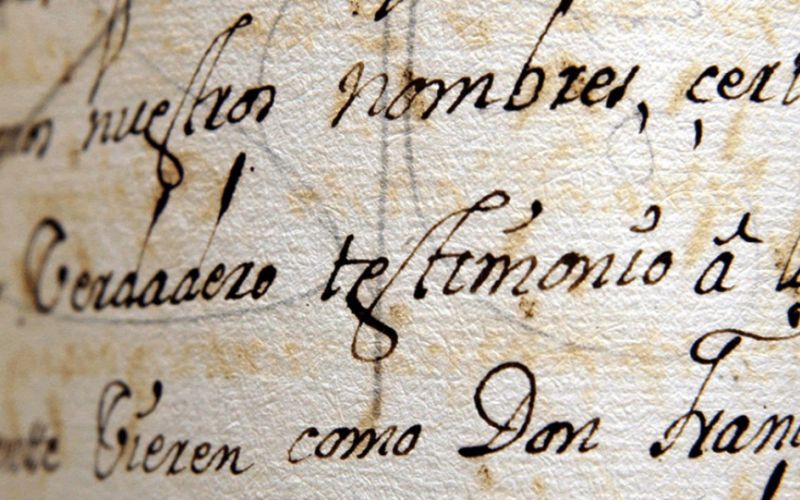 nuestros nombres, çert
Verdadero testimonio â la
Vieren como Don Fran